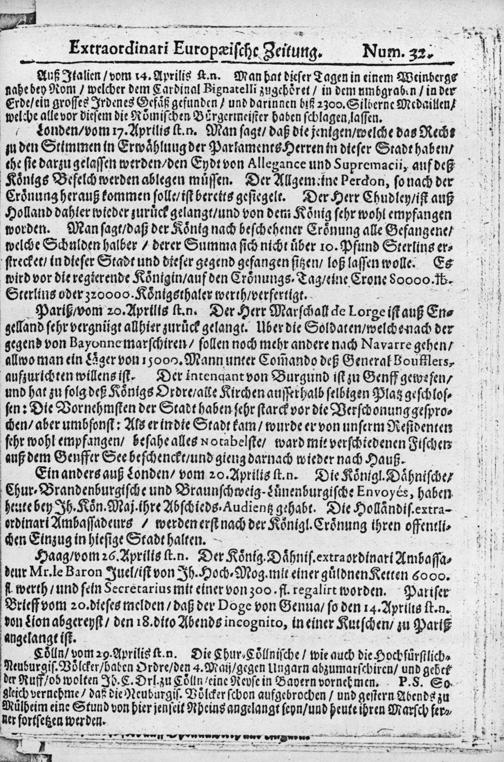 Extraordinari Europæische Zeitung. Num. 32.
Auß Italien/vom 14. Aprilis st.n. Man hat dieser Tagen in einem Weinbergs
nahe bey Rom / welcher dem Cardinal Bignatelli zugehöret / in dem umbgraben / in der
Erde/ein grosses Irdenes Gefäß gefunden / und darinnen biß 2300. Silberne Medaillen/
welche alle vor diesem die Römischen Bürgermeister haben schlagen lassen.
Londen/vom 17. Aprilis st.n. Man sagt/ daß die jenigen/welche das Recht
zu den Stimmen in Erwählung der Parlaments Herren in dieser Stadt haben/
ehe sie darzu gelassen werden/den Eydt von Allegance und Supremacii, auf deß
Königs Befelch werden ablegen müssen. Der Allgemeine Perdon, so nach der
Crönung herauß kommen solle/ist bereits gesiegelt. Der Herr Chudley/ist auß
Holland dahier wieder zurück gelangt/und von dem König sehr wohl empfangen
worden. Man sagt/daß der König nach beschehener Crönung alle Gefangene/
welche Schulden halber / derer Summa sich nicht über 10. Pfund Sterlins er-
strecket/ in dieser Stadt und dieser gegend gefangen sitzen/ loß lassen wolle. Es
wird vor die regierende Königin/auf den Crönungs-Tag/eine Crone 80000. lb.
Sterlins oder 320000. Königsthaler werth/verfertigt.
Pariß/vom 20. Aprilis st.n. Der Herr Marschall de Lorge ist auß En-
gelland sehr vergnügt allhier zurück gelangt. Uber die Soldaten/welche nach der
gegend von Bayonne marschiren/ sollen noch mehr andere nach Navarre gehen/
allwo man ein Läger von 15000. Mann unter Com̃ando deß General Boufflers,
aufzurichten willens ist. Der Intenqant von Burgund ist zu Genff gewesen/
und hat zu folg deß Königs Ordre/alle Kirchen ausserhalb selbigen Platz geschlos-
sen: Die Vornehmsten der Stadt haben sehr starck vor die Verschonung gespro-
chen/ aber umbsonst: Als er in die Stadt kam/ wurde er von unserm Residenten
sehr wohl empfangen/ besahe alles Notabelste/ ward mit verschiedenen Fischen
auß dem Genffer See beschencke/und gieng darnach wieder nach Hauß.
Ein anders auß Londen/ vom 20. Aprilis st.n. Die Königl. Dähnische/
Chur-Brandenburgische und Braunschweig-Lünenburgische Envoyés, haben
heute bey Ih. Kön. Maj. ihre Abschieds-Audientz gehabt. Die Holländis. extra-
ordinari Ambassadeurs / werden erst nach der Königl. Crönung ihren offentli-
chen Einzug in hiesige Stadt halten.
Haag/vom 26. Aprilis st.n. Der König. Dähnis. extraordinari Ambassa-
deur Mr. le Baron Juel/ist von Ih. Hoch-Mog. mit einer güldnen Ketten 6000.
fl. werth/ und sein Secretarius mit einer von 300. fl. regalirt worden. Pariser
Brieff vom 20. dieses melden / daß der Doge von Genua/ so den 14. Aprilis st.n.
von Lion abgereyst/ den 18. dito Abends incognito, in einer Kutschen/ zu Pariß
angelangt ist.
Cölln/ vom 29. Aprilis st.n. Die Chur-Cöllnische / wie auch die Hochfürstlich-
Neuburgis. Völcker/haben Ordre/den 4. Maij/gegen Ungarn abzumarschiren/ und gehet
der Ruff/ob wolten Ih. C. Drl. zu Cölln/eine Reyse in Bayern vornehmen. P.S. So
gleich vernehme / daß die Neuburgis. Völcker schon aufgebrochen / und gestern Abends zu
Mülheim eine Stund von hier jenseit Rheins angelangt seyn/und heute ihren Marsch fer-
ner fortsetzen werden.